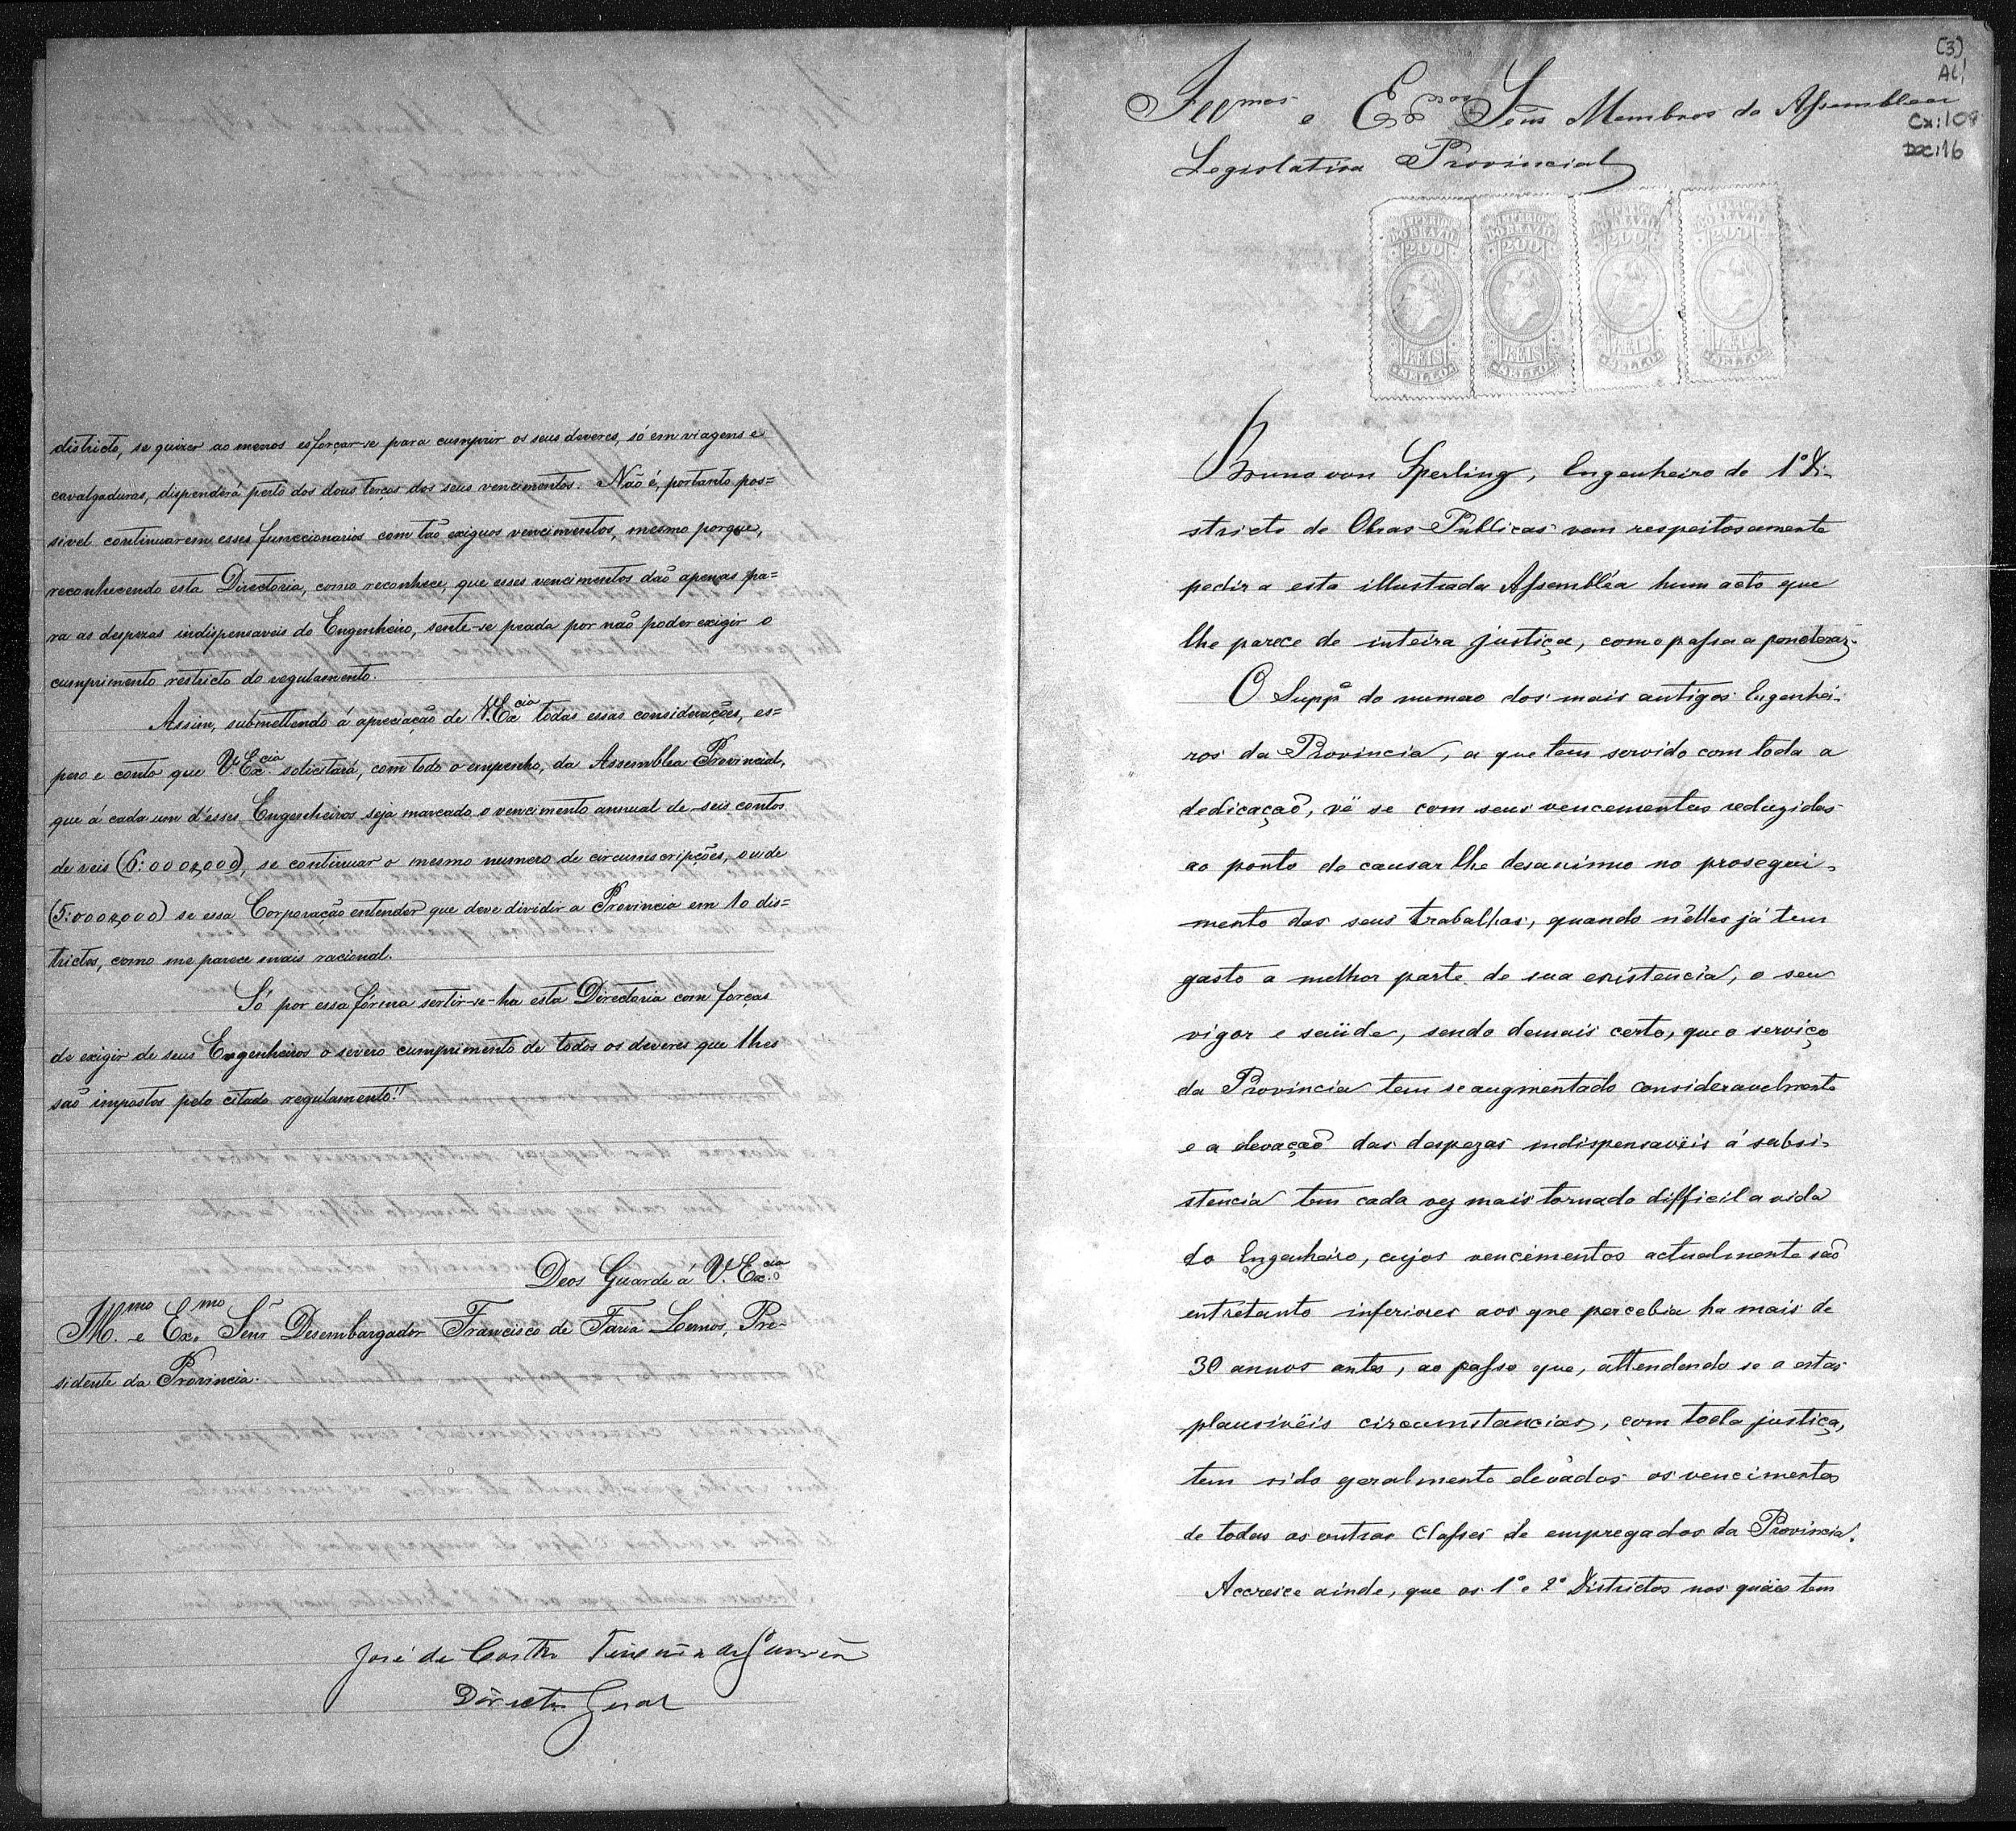 districto, se quizer ao menos esforçar-se para cumprir os seus deveres, só em viagens e
cavalgaduras, dispenderá perto dos dous terços dos seus vencimentos. Não é, portanto pos=
sivel continuarem esses funccionarios com tão exiguos vencimentos, mesmo porque,
reconhecendo esta Directoria, como reconhece, que esses vencimentos dão apenas pa=
ra as despezas indispensaveis do Engenheiro, sente-se peada por não poder exigir o
cumprimento restricto do regulamento.
Assim, submettendo á apreciação de V. Excia todas essas considerações, es=
pero e conto que V. Excia. solicitará, com todo o empenho, da Assemblea Provincial,
que á cada um d'esses Engenheiros seja marcado o vencimento annual de seis contos
de reis (6:000$000), se continuar o mesmo numero de circumscripções, ou de
(5:000$000) se essa Corporação entender que deve dividir a Provincia em 10 dis=
trictos, como me parece mais racional.
Só por essa fórma sertir-se-ha esta Directoria com forças
de exigir de seus Engenheiros o severo cumprimento de todos os deveres que lhes
são impostos pelo citado regulamento."
Deos Guarde á V. Excia
Illmo. e Exmo. Senr Desembargador Francisco de Faria Lemos, Pre-
sidente da Provincia.
José da Costa
Director Geral
(3)
AL!
Illmos e Exmos Senrs Membros da Assemblea
Cx:109
Doc:16
Legislativa Provincial
IMPERIO DO BRAZIL 200 REIS SELLO
IMPERIO DO BRAZIL 200 REIS SELLO
IMPERIO DO BRAZIL 200 REIS SELLO
IMPERIO DO BRAZIL 200 REIS SELLO
Bruno von Sperling, Engenheiro do 1º Di-
stricto de Obras Publicas vem respeitosamente
pedir a esta illustrada Assembléa hum acto que
lhe parece de inteira justiça, como passa a ponderar.
O Suppe do numero dos mais antigos Engenhei-
ros da Provincia, a que tem servido com toda a
dedicação, vê se com seus vencementos reduzidos
ao ponto de causar lhe desanimo no prosegui-
mento dos seus trabalhos, quando n'elles já tem
gasto a melhor parte de sua existencia, o seu
vigor e saüde, sendo demais certo, que o serviço
da Provincia tem se augmentado consideravelmente
e a elevação das despezas indispensavëis á subsi-
stencia tem cada vez mais tornado difficil a vida
do Engenheiro, cujos vencimentos actualmente são
entretanto inferiores aos que percebia ha mais de
30 annos antes, ao passo que, attendendo se a estas
plausivëis circumstancias, com toda justiça,
tem sido geralmente elevados os vencimentos
de todas as outras classes de empregados da Provincia.
Accresce ainde, que os 1º e 2º Districtos nos quäes tem